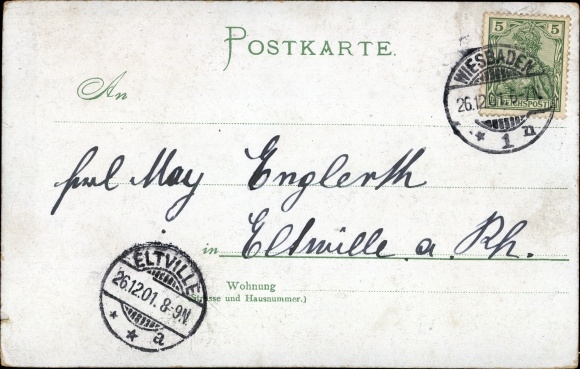 POSTKARTE.
5 5
REICHSPOST
WIESBADEN
26.12.01.
* 1 n
An
May Englerth
in Eltville a. Rh.
Wohnung
(Strasse und Hausnummer.)
ELTVILLE
26.12.01. 8-9N.
* * a